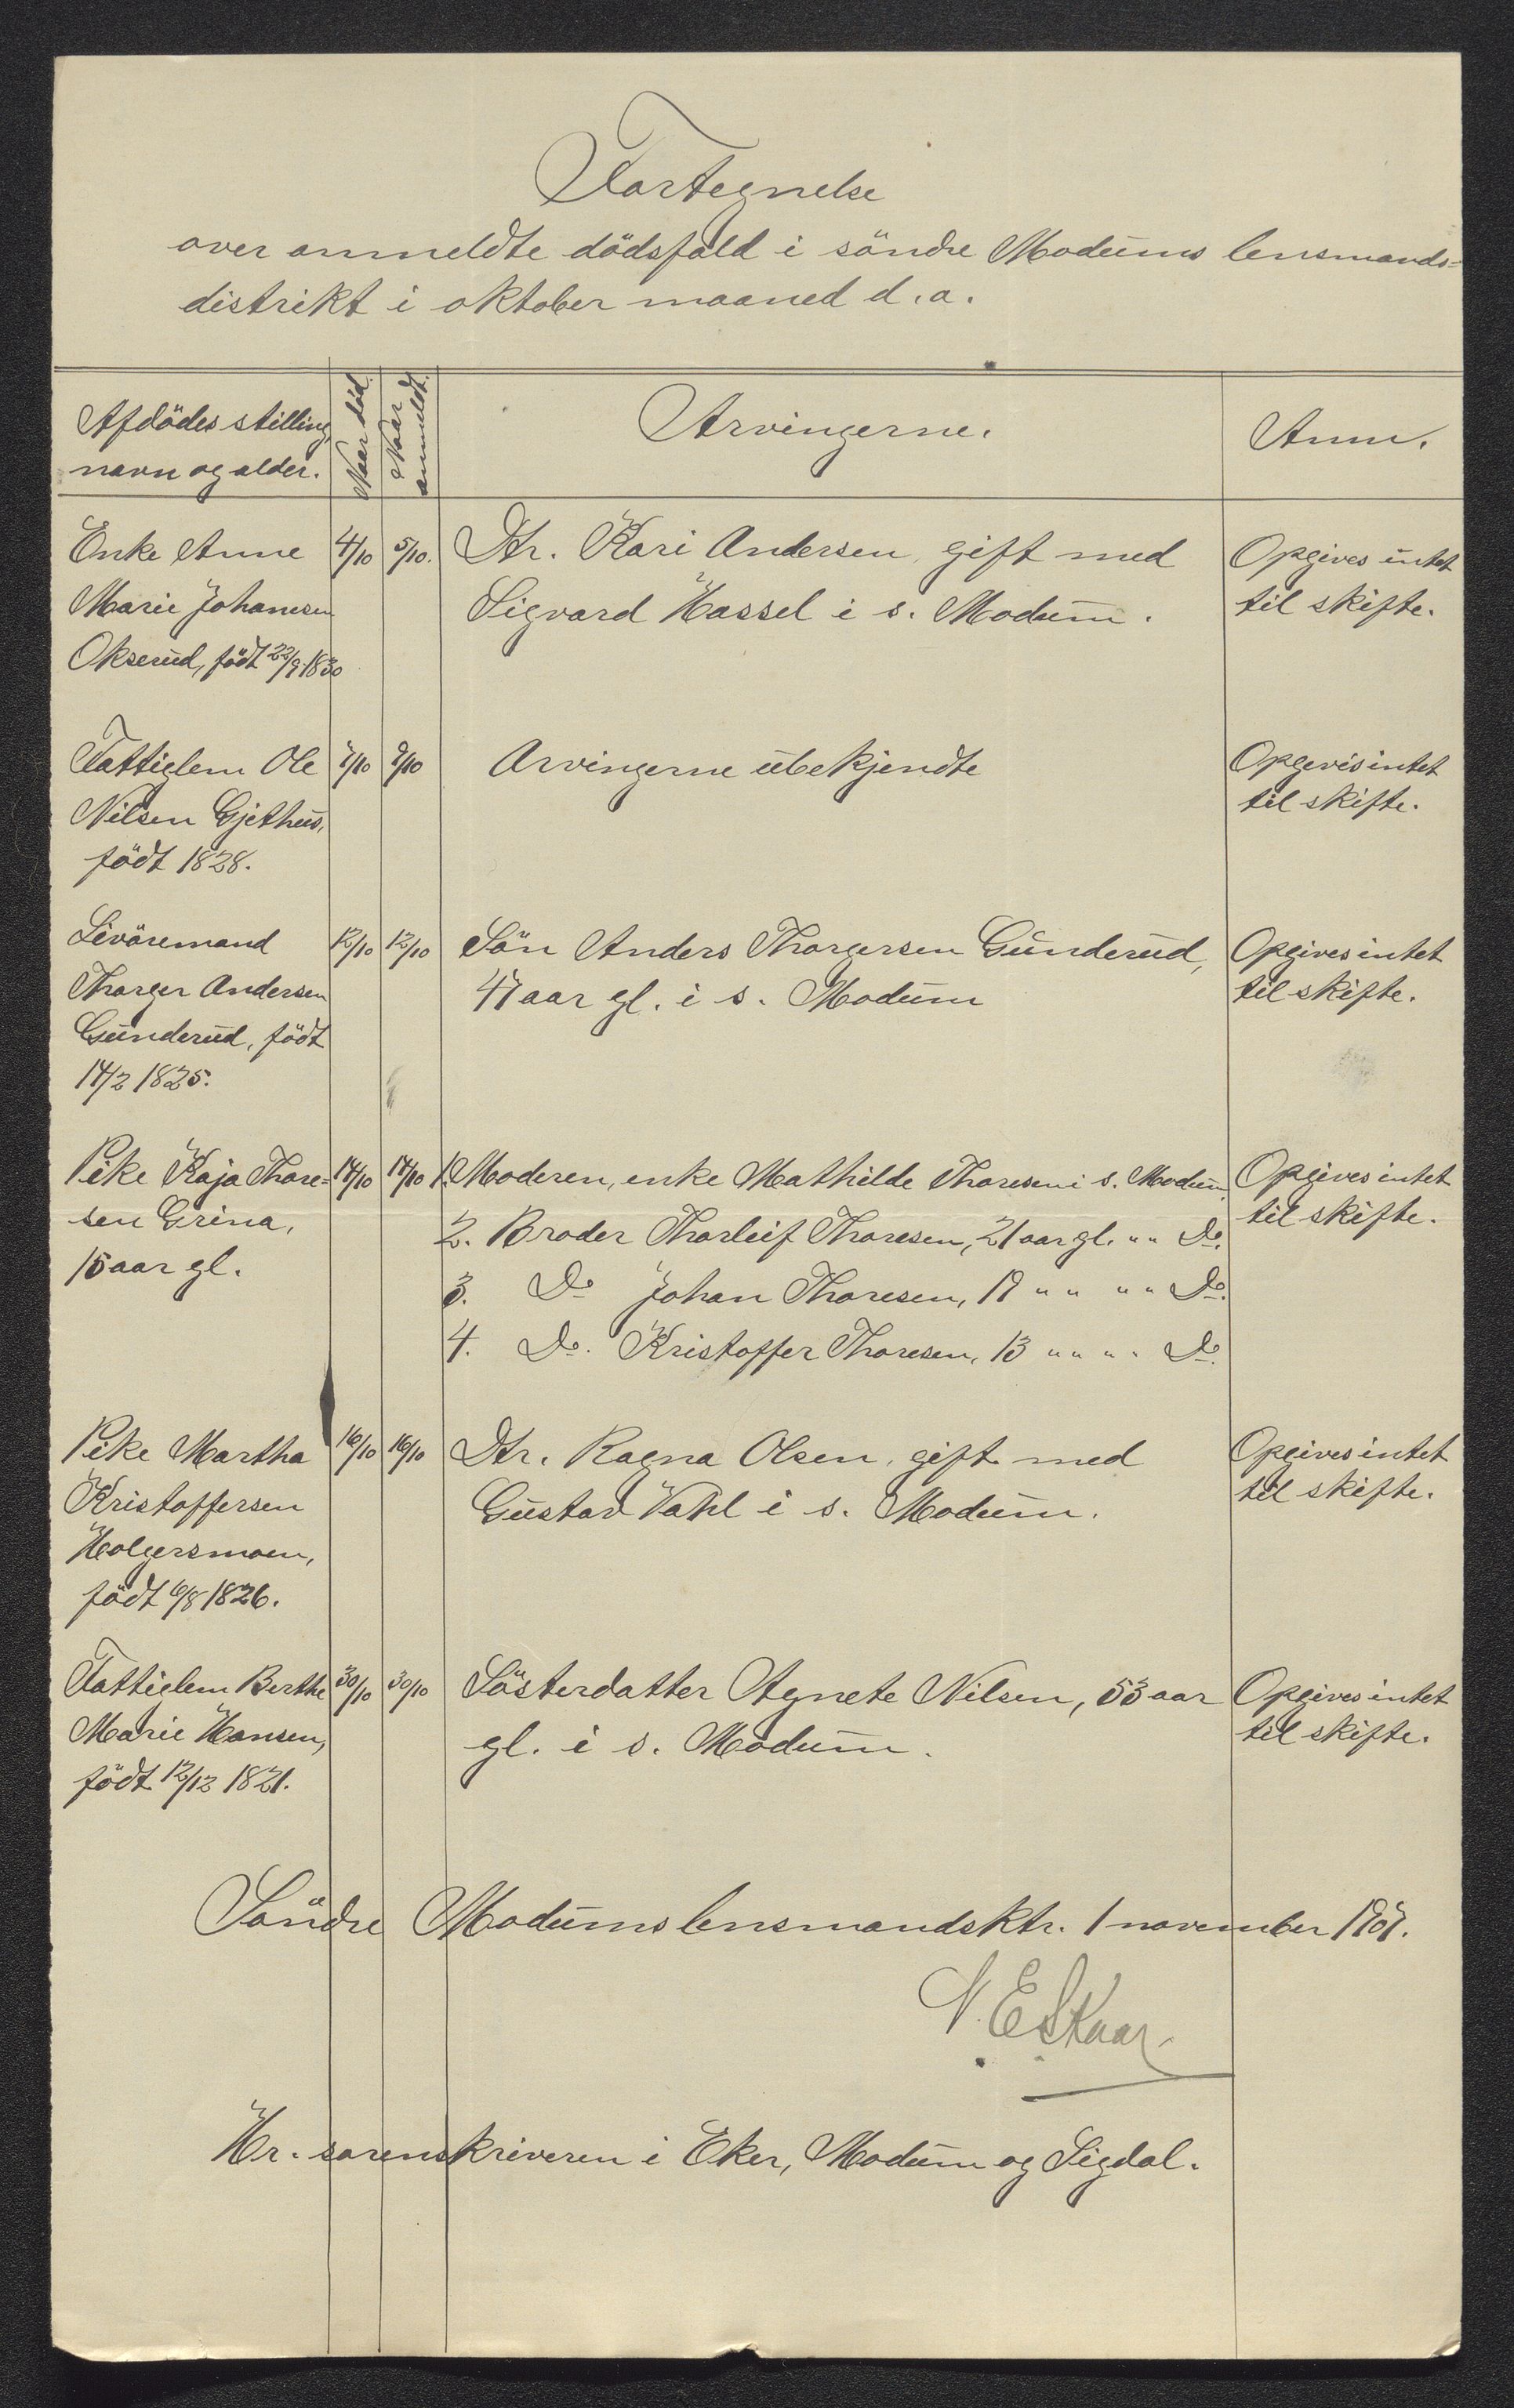 Fortegnelse
over anmeldte dödsfald i söndre Modums lensmands-
distrikt i oktober maaned d.a.
Afdödes stilling, navn og alder.
Naar död.
Naar anmeldt.
Arvingerne.
Anm.
Enke Anne 4/10 5/10. Dtr. Kari Andersen, gift med Opgives intet
Marie Johanesen Sigvard Hassel i s. Modum. til skifte.
Okserud, födt 22/9 1830
Fattiglem Ole 7/10 9/10 Arvingerne ubekjendte Opgevis intet
Nilsen Gjethus, til skifte.
födt 1828.
Livöremand 12/10 12/10 Sön Anders Thorgersen Gunderud, Opgives intet
Thorger Andersen 47 aar gl. i s. Modum til skifte.
Gunderud, födt
14/2 1825.
Pike Kaja Thore- 14/10 17/10 1. Moderen, enke Mathilde Thoresen i s. Modum, Opgives intet
sen Grina, 2. Broder Thorleif Thoresen, 21 aar gl. " " Do. til skifte.
15 aar gl. 3. Do Johan Thoresen, 19 " " " " Do.
4. Do. Kristoffer Thoresen, 13 " " " " Do.
Pike Martha 16/10 16/10 Dtr. Ragna Olsen, gift med Opgives intet
Kristoffersen Gustav Vahl i s. Modum. til skifte.
Holgersmoen,
födt 6/8 1826.
Fattiglem Berthe 30/10 30/10 Sösterdatter Agnete Nilsen, 53 aar Opgives intet
Marie Hansen, gl. i s. Modum. til skifte.
födt 12/12 1821.
Söndre Modums lensmandsktr. 1 november 1907.
N. E. Skaar
Hr. sorenskriveren i Eker, Modum og Sigdal.